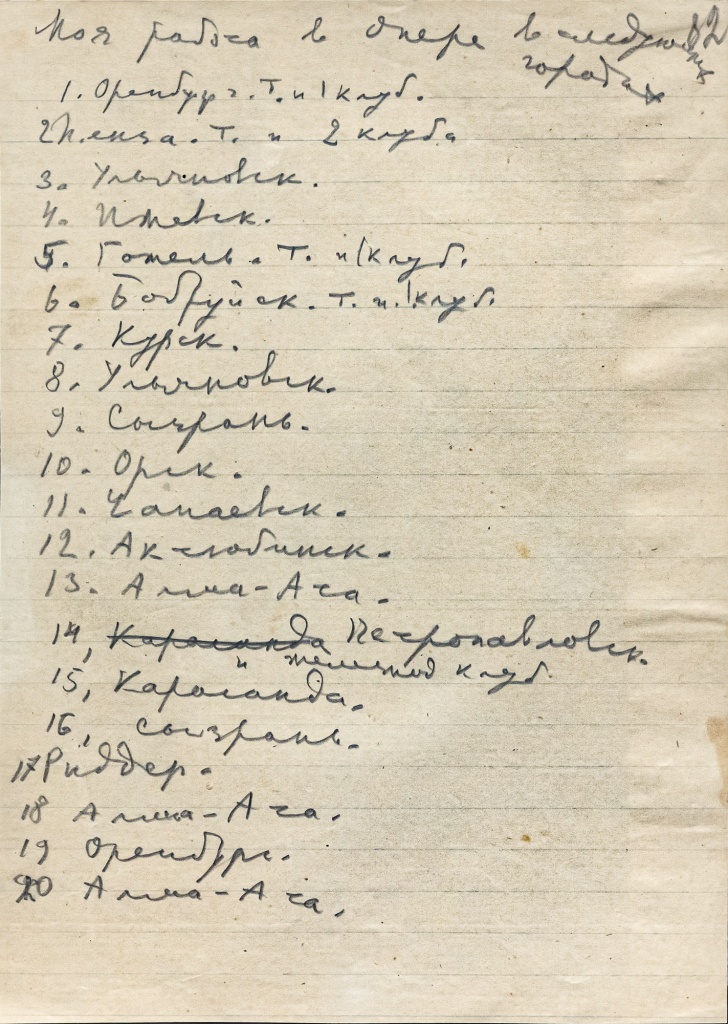 82
Моя работа в опере в следующих
городах
1. Оренбург. Т. и 1 клуб.
2 Пенза. Т. и 2 клуба
3. Ульяновск.
4. Ижевск.
5. Гомель. Т. и 1 клуб.
6. Бобруйск. Т. и 1 клуб.
7. Курск.
8. Ульяновск.
9. Сызрань.
10. Орск.
11. Чапаевск.
12. Актюбинск.
13. Алма-Ата.
14, Караганда Петропавловск.
и железнод клуб.
15, Караганда.
16, Сызрань.
17 Риддер.
18 Алма-Ата.
19 Оренбург.
20 Алма-Ата.